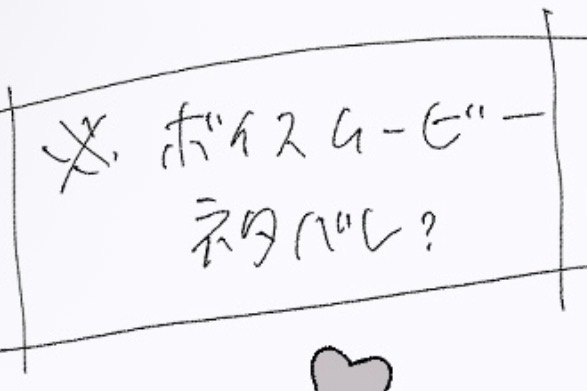 ※ ボイスムービー
ネタバレ?